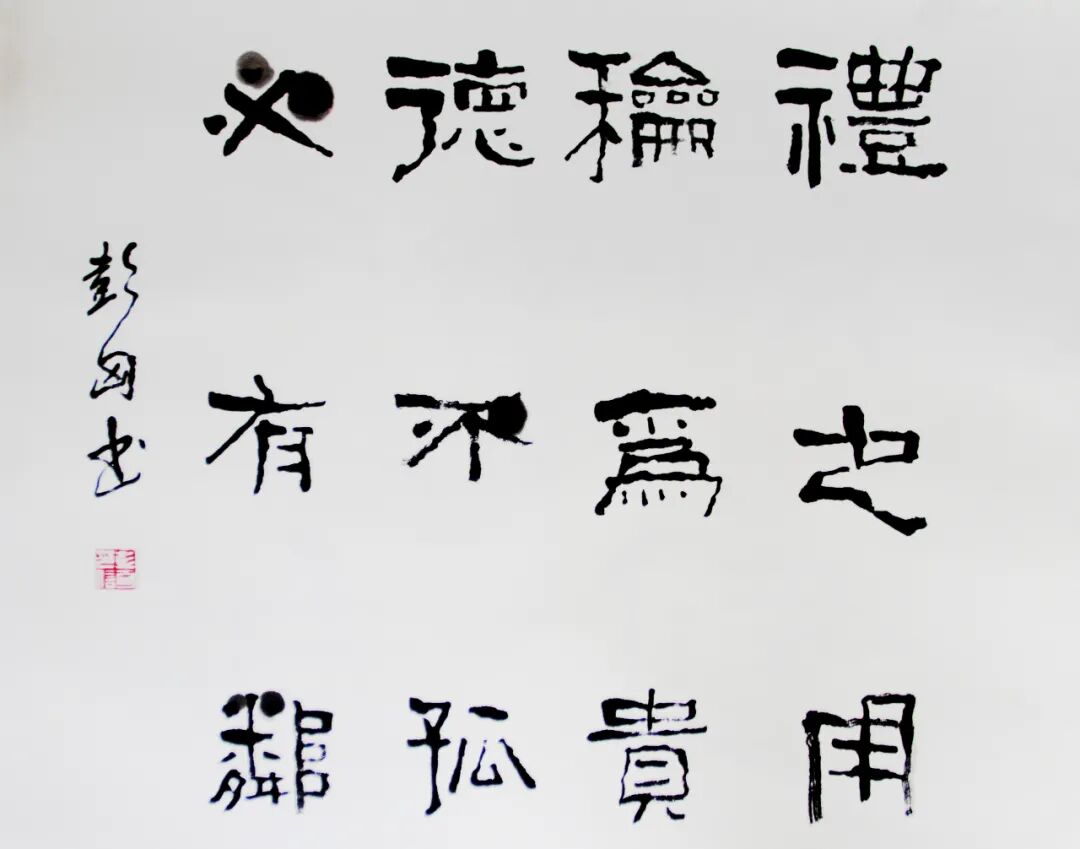 禮之用
龢爲貴
德不孤
必有鄰
彭 书